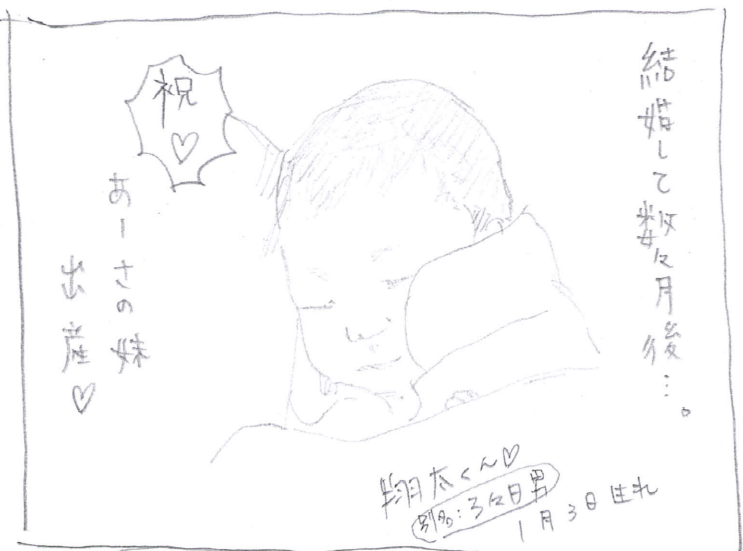 結婚して数々月後…。
祝♡
あーさの妹
出産♡
翔太くん♡
別名：3々日男
1月3日生れ